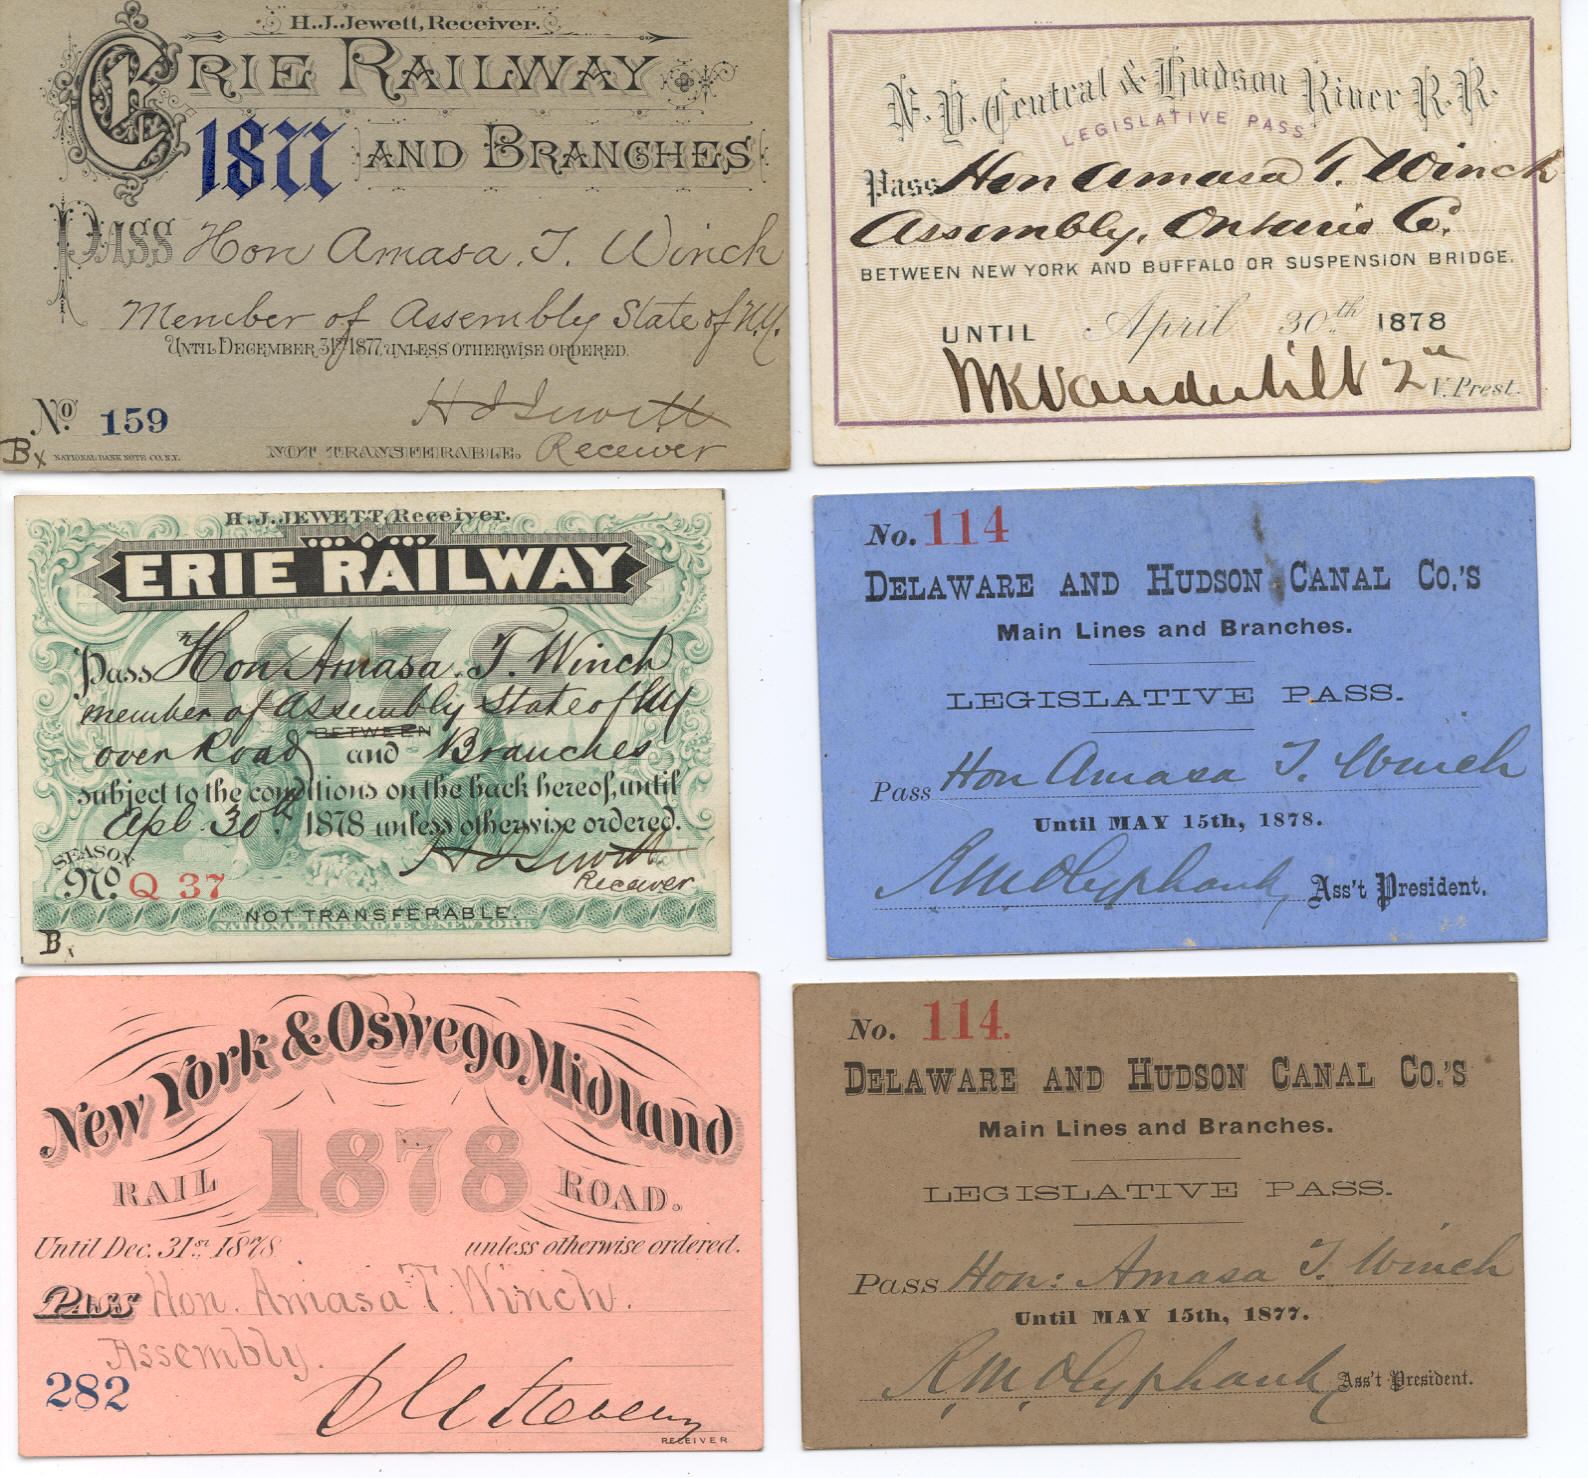 H.J. Jewett, Receiver.
ERIE RAILWAY
1877 AND BRANCHES
PASS Hon Amasa. T. Winch
Member of Assembly State of N.Y.
UNTIL DECEMBER 31st 1877, UNLESS OTHERWISE ORDERED.
H J Jewett
No. 159
NOT TRANSFERABLE. Receiver
Bx NATIONAL BANK NOTE CO. N.Y.
N. Y. Central & Hudson River R. R.
LEGISLATIVE PASS
Pass Hon Amasa T. Winch
Assembly, Ontario Co.
BETWEEN NEW YORK AND BUFFALO OR SUSPENSION BRIDGE.
UNTIL April 30th 1878
WKVanderbilt 2nd V. Prest.
H. J. JEWETT, Receiver.
ERIE RAILWAY
1878
Pass Hon Amasa. T. Winch
member of Assembly State of NY
BETWEEN
over Road and Branches
subject to the conditions on the back hereof, until
Apl 30th 1878 unless otherwise ordered.
H J Jewett
SEASON
No. Q 37 Receiver
NOT TRANSFERABLE.
NATIONAL BANK NOTE Co. NEW YORK
Bx
No. 114
DELAWARE AND HUDSON CANAL CO.'S
Main Lines and Branches.
LEGISLATIVE PASS.
Pass Hon Amasa T. Winch
Until MAY 15th, 1878.
R. M. Olyphant, Ass't President.
New York & Oswego Midland
RAIL 1878 ROAD.
Until Dec. 31st 1878 unless otherwise ordered.
Pass Hon. Amasa T. Winch.
Assembly.
282
RECEIVER
No. 114.
DELAWARE AND HUDSON CANAL CO.'S
Main Lines and Branches.
LEGISLATIVE PASS.
Pass Hon: Amasa T. Winch
Until MAY 15th, 1877.
R. M. Olyphant, Ass't President.